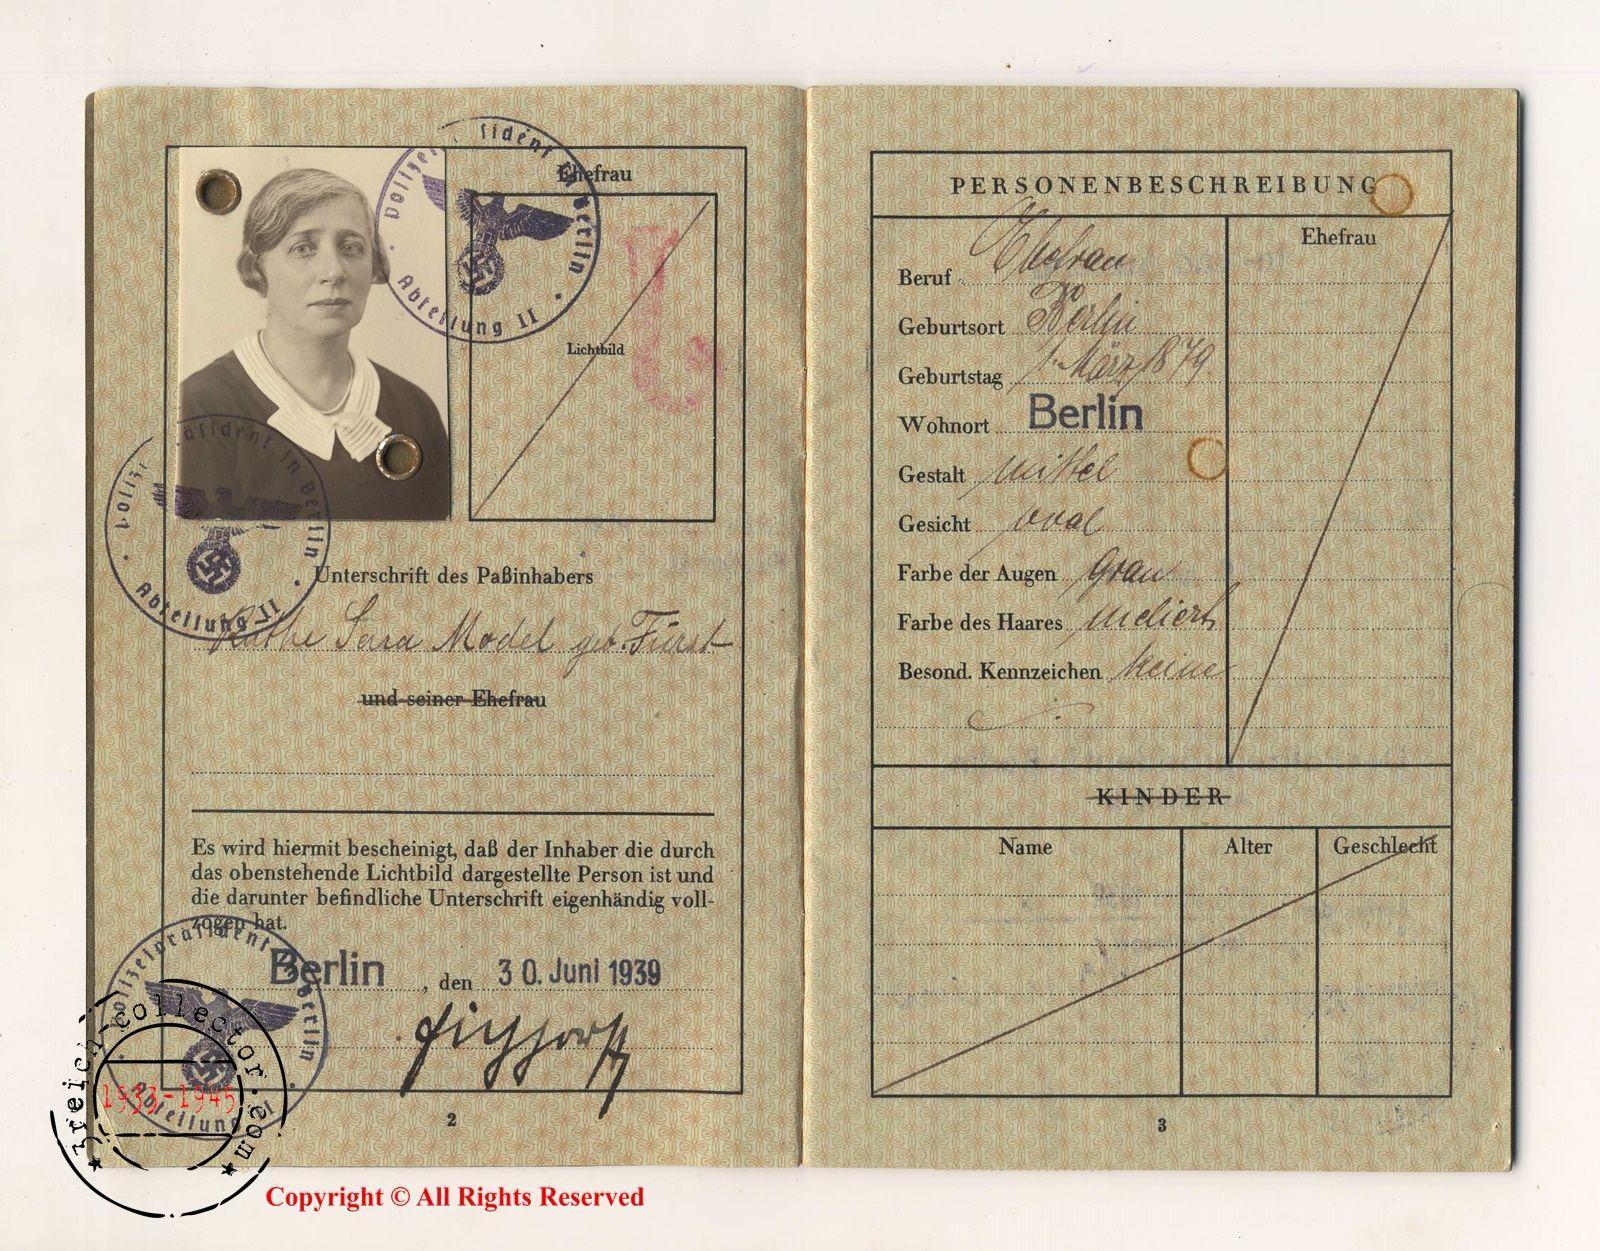 Polizeipräsident in Berlin
Abteilung II
Ehefrau
J
Lichtbild
Polizeipräsident in Berlin
Abteilung II
Unterschrift des Paßinhabers
Käthe Sara Model geb. Fürst
und seiner Ehefrau
Es wird hiermit bescheinigt, daß der Inhaber die durch
das obenstehende Lichtbild dargestellte Person ist und
die darunter befindliche Unterschrift eigenhändig voll-
zogen hat.
Berlin, den 30. Juni 1939
Polizeipräsident Berlin
Abteilung
2
PERSONENBESCHREIBUNG
Ehefrau
Beruf Ehefrau
Geburtsort Berlin
Geburtstag 1. März 1879.
Wohnort Berlin
Gestalt mittel
Gesicht oval
Farbe der Augen grau
Farbe des Haares meliert
Besond. Kennzeichen keine
KINDER
Name Alter Geschlecht
3
3reich-collector.com
1933-1945
Copyright © All Rights Reserved